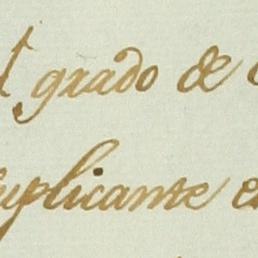 grado de
uplicante e